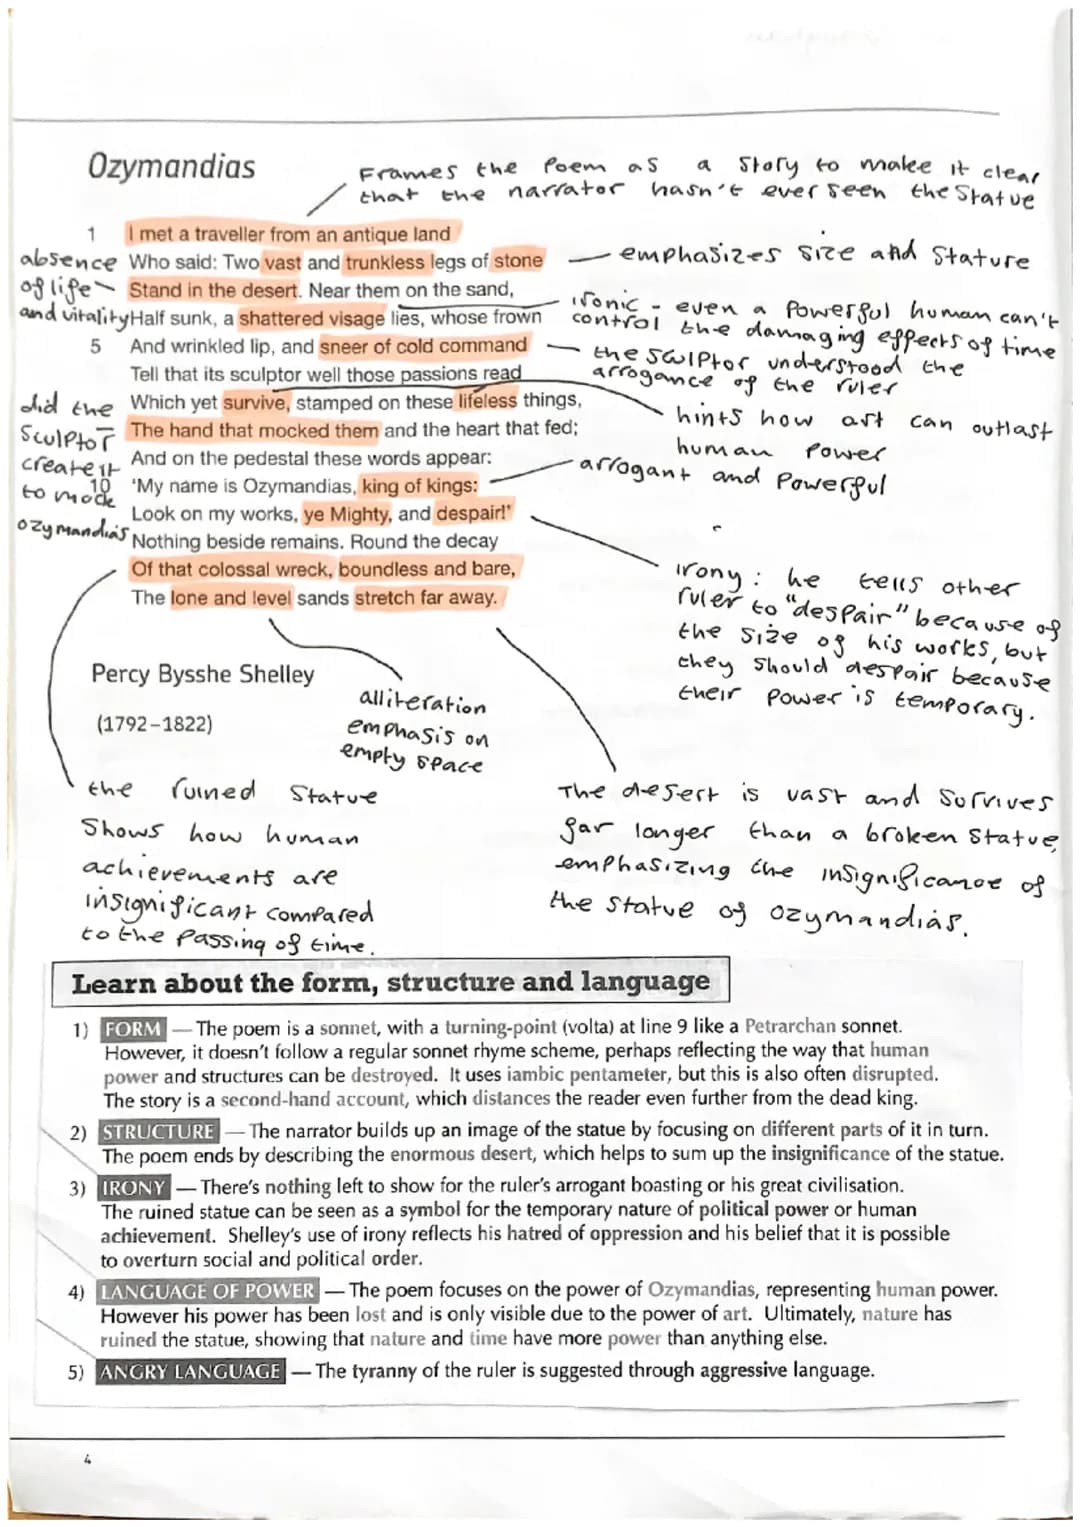 Ozymandias
Frames the Poem as a Story to make it clear
that the narrator hasn't ever seen the Statue
1 I met a traveller from an antique land
Who said: Two vast and trunkless legs of stone
Stand in the desert. Near them on the sand,
Half sunk, a shattered visage lies, whose frown
5 And wrinkled lip, and sneer of cold command
Tell that its sculptor well those passions read
Which yet survive, stamped on these lifeless things,
The hand that mocked them and the heart that fed;
And on the pedestal these words appear:
10 'My name is Ozymandias, king of kings:
Look on my works, ye Mighty, and despair!'
Nothing beside remains. Round the decay
Of that colossal wreck, boundless and bare,
The lone and level sands stretch far away.
absence
of life
and vitality
did the
Sculptor
create it
to mock
ozymandias
emphasizes size and Stature
ironic - even a Powerful human can't
control the damaging effects of time
the sculptor understood the
arrogance of the ruler
hints how art can outlast
human Power
arrogant and Powerful
irony: he tells other
ruler to "despair" because of
the size of his works, but
they should despair because
their power is temporary.
Percy Bysshe Shelley
(1792–1822)
alliteration
emphasis on
empty space
the ruined Statue
Shows how human
achievements are
insignificant compared
to the Passing of time.
The desert is vast and Survives
far longer than a broken Statue,
emphasizing the insignificance of
the statue of ozymandias.
Learn about the form, structure and language
1) FORM — The poem is a sonnet, with a turning-point (volta) at line 9 like a Petrarchan sonnet.
However, it doesn't follow a regular sonnet rhyme scheme, perhaps reflecting the way that human
power and structures can be destroyed. It uses iambic pentameter, but this is also often disrupted.
The story is a second-hand account, which distances the reader even further from the dead king.
2) STRUCTURE — The narrator builds up an image of the statue by focusing on different parts of it in turn.
The poem ends by describing the enormous desert, which helps to sum up the insignificance of the statue.
3) IRONY — There's nothing left to show for the ruler's arrogant boasting or his great civilisation.
The ruined statue can be seen as a symbol for the temporary nature of political power or human
achievement. Shelley's use of irony reflects his hatred of oppression and his belief that it is possible
to overturn social and political order.
4) LANGUAGE OF POWER — The poem focuses on the power of Ozymandias, representing human power.
However his power has been lost and is only visible due to the power of art. Ultimately, nature has
ruined the statue, showing that nature and time have more power than anything else.
5) ANGRY LANGUAGE — The tyranny of the ruler is suggested through aggressive language.
4